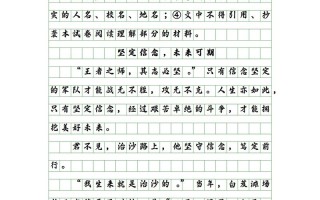 定的人名、校名、地名；④文中不得引用、抄
录本试卷阅读理解部分的材料。
坚定信念，未来可期
“王者之师，其志必坚。”只有信念坚定
的军队才能战无不胜，攻无不克。人生亦如此，
只有坚定信念，经过艰苦卓绝的斗争，才能拥
抱美好未来。
君不见，治沙路上，他坚守信念，笃定前
行。
“我生来就是治沙的。”当年，白芨滩场